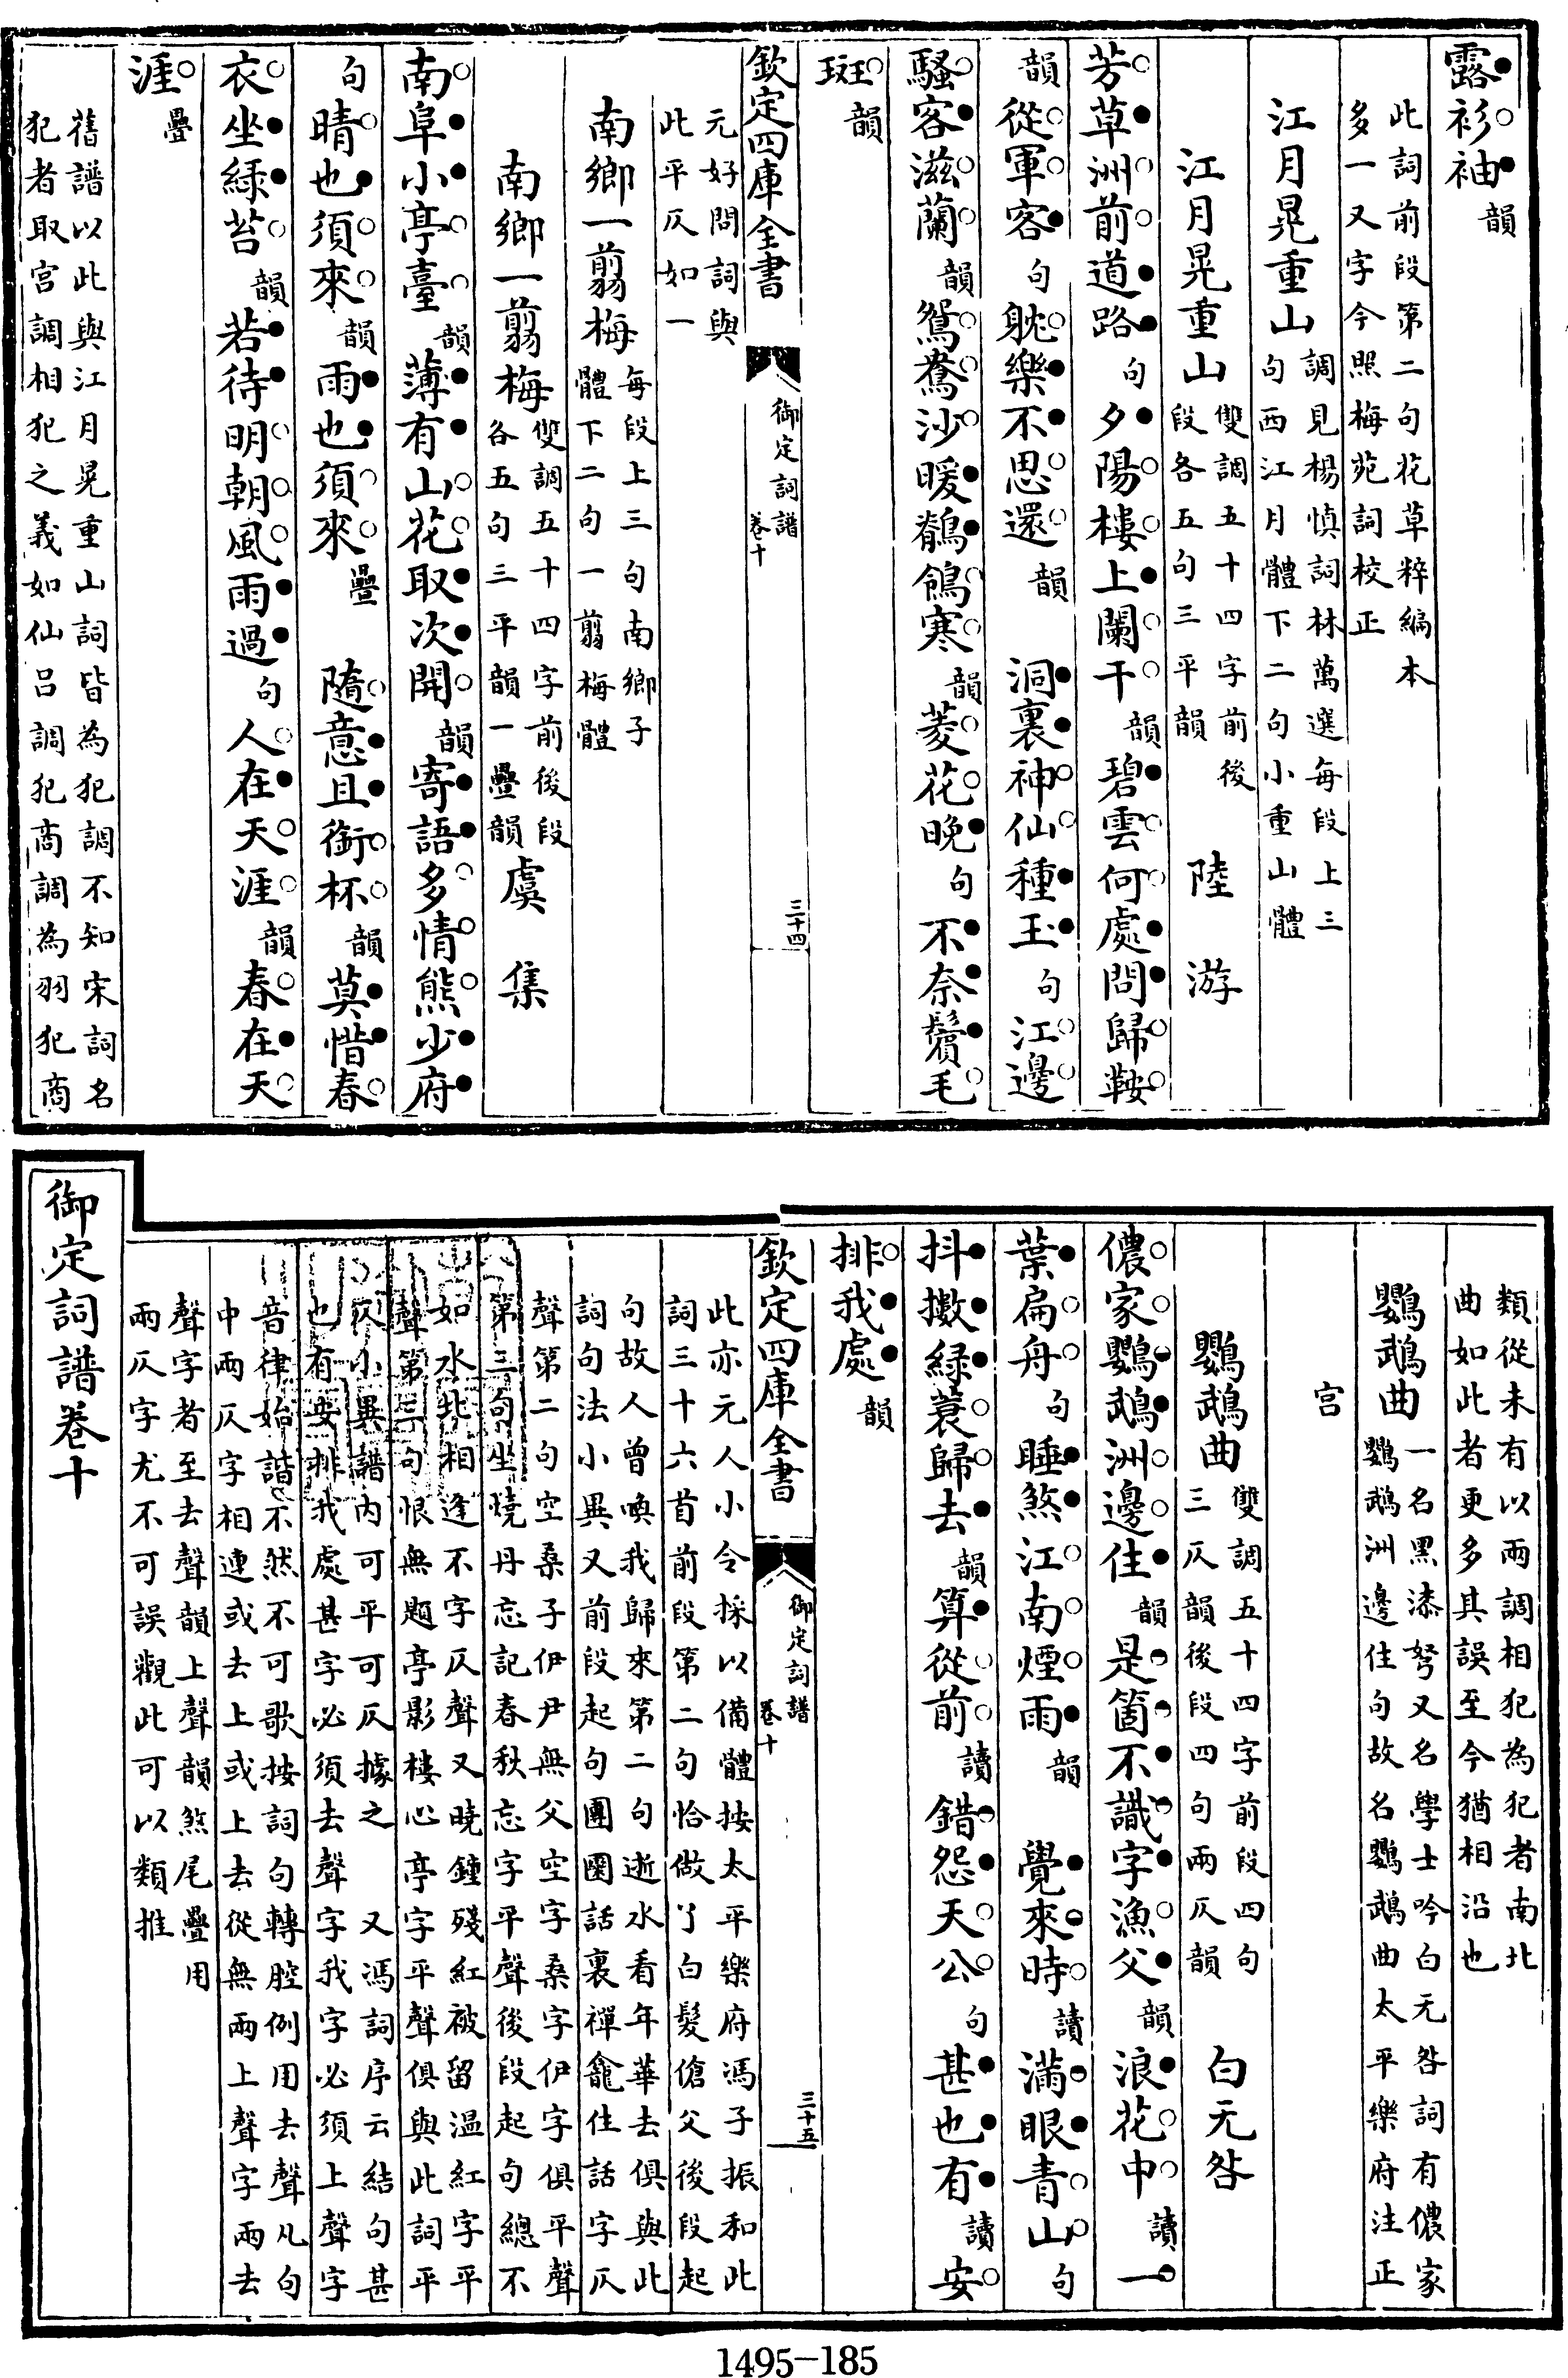 露衫袖韻
此詞前段第二句花草粹編本
多一又字今照梅苑詞校正
江月晃重山調見楊慎詞林萬選每段上三
句西江月體下二句小重山體
江月晃重山雙調五十四字前後
段各五句三平韻 陸游
芳草洲前道路句夕陽樓上闌干韻碧雲何處問歸鞍
韻從軍客句躭樂不思還韻 洞裏神仙種玉句江邊
騷客滋蘭韻鴛鴦沙暖鶺鴒寒韻菱花晚句不奈鬢毛
斑韻
欽定四庫全書 御定詞譜 卷十 三十四
元好問詞與
此平仄如一
南鄉一翦梅每段上三句南鄉子
體下二句一翦梅體
南鄉一翦梅雙調五十四字前後段
各五句三平韻一疊韻 虞集
南阜小亭臺韻薄有山花取次開韻寄語多情熊少府
句晴也須來韻雨也須來疊 隨意且銜杯韻莫惜春
衣坐綠苔韻若待明朝風雨過句人在天涯韻春在天
涯疊
舊譜以此與江月晃重山詞皆為犯調不知宋詞名
犯者取宫調相犯之義如仙呂調犯商調為羽犯商
類從未有以兩調相犯為犯者南北
曲如此者更多其誤至今猶相沿也
鸚鵡曲一名黑漆弩又名學士吟白元咎詞有儂家
鸚鵡洲邊住句故名鸚鵡曲太平樂府注正
宫
鸚鵡曲雙調五十四字前段四句
三仄韻後段四句兩仄韻 白无咎
儂家鸚鵡洲邊住韻是箇不識字漁父韻浪花中讀一
葉扁舟句睡煞江南煙雨韻 覺來時讀滿眼青山句
抖擻綠蓑歸去韻算從前讀錯怨天公句甚也有讀安
排我處韻
欽定四庫全書 御定詞譜 卷十 三十五
此亦元人小令採以備體按太平樂府馮子振和此
詞三十六首前段第二句恰做丫白髮傖父後段起
句故人曾喚我歸來第二句逝水看年華去俱與此
詞句法小異又前段起句團圞話裏禪龕住話字仄
聲第二句空桑子伊尹無父空字桑字伊字俱平聲
第三句坐燒丹忘記春秋忘字平聲後段起句總不
如水北相逢不字仄聲又曉鐘殘紅被留溫紅字平
聲第三句恨無題亭影樓心亭字平聲俱與此詞平
仄小異譜内可平可仄據之 又馮詞序云結句甚
也有安排我處甚字必須去聲字我字必須上聲字
音律始諧不然不可歌按詞句轉腔例用去聲凡句
中兩仄字相連或去上或上去從無兩上聲字兩去
聲字者至去聲韻上聲韻煞尾疊用
兩仄字尤不可誤觀此可以類推
御定詞譜卷十
1495-185